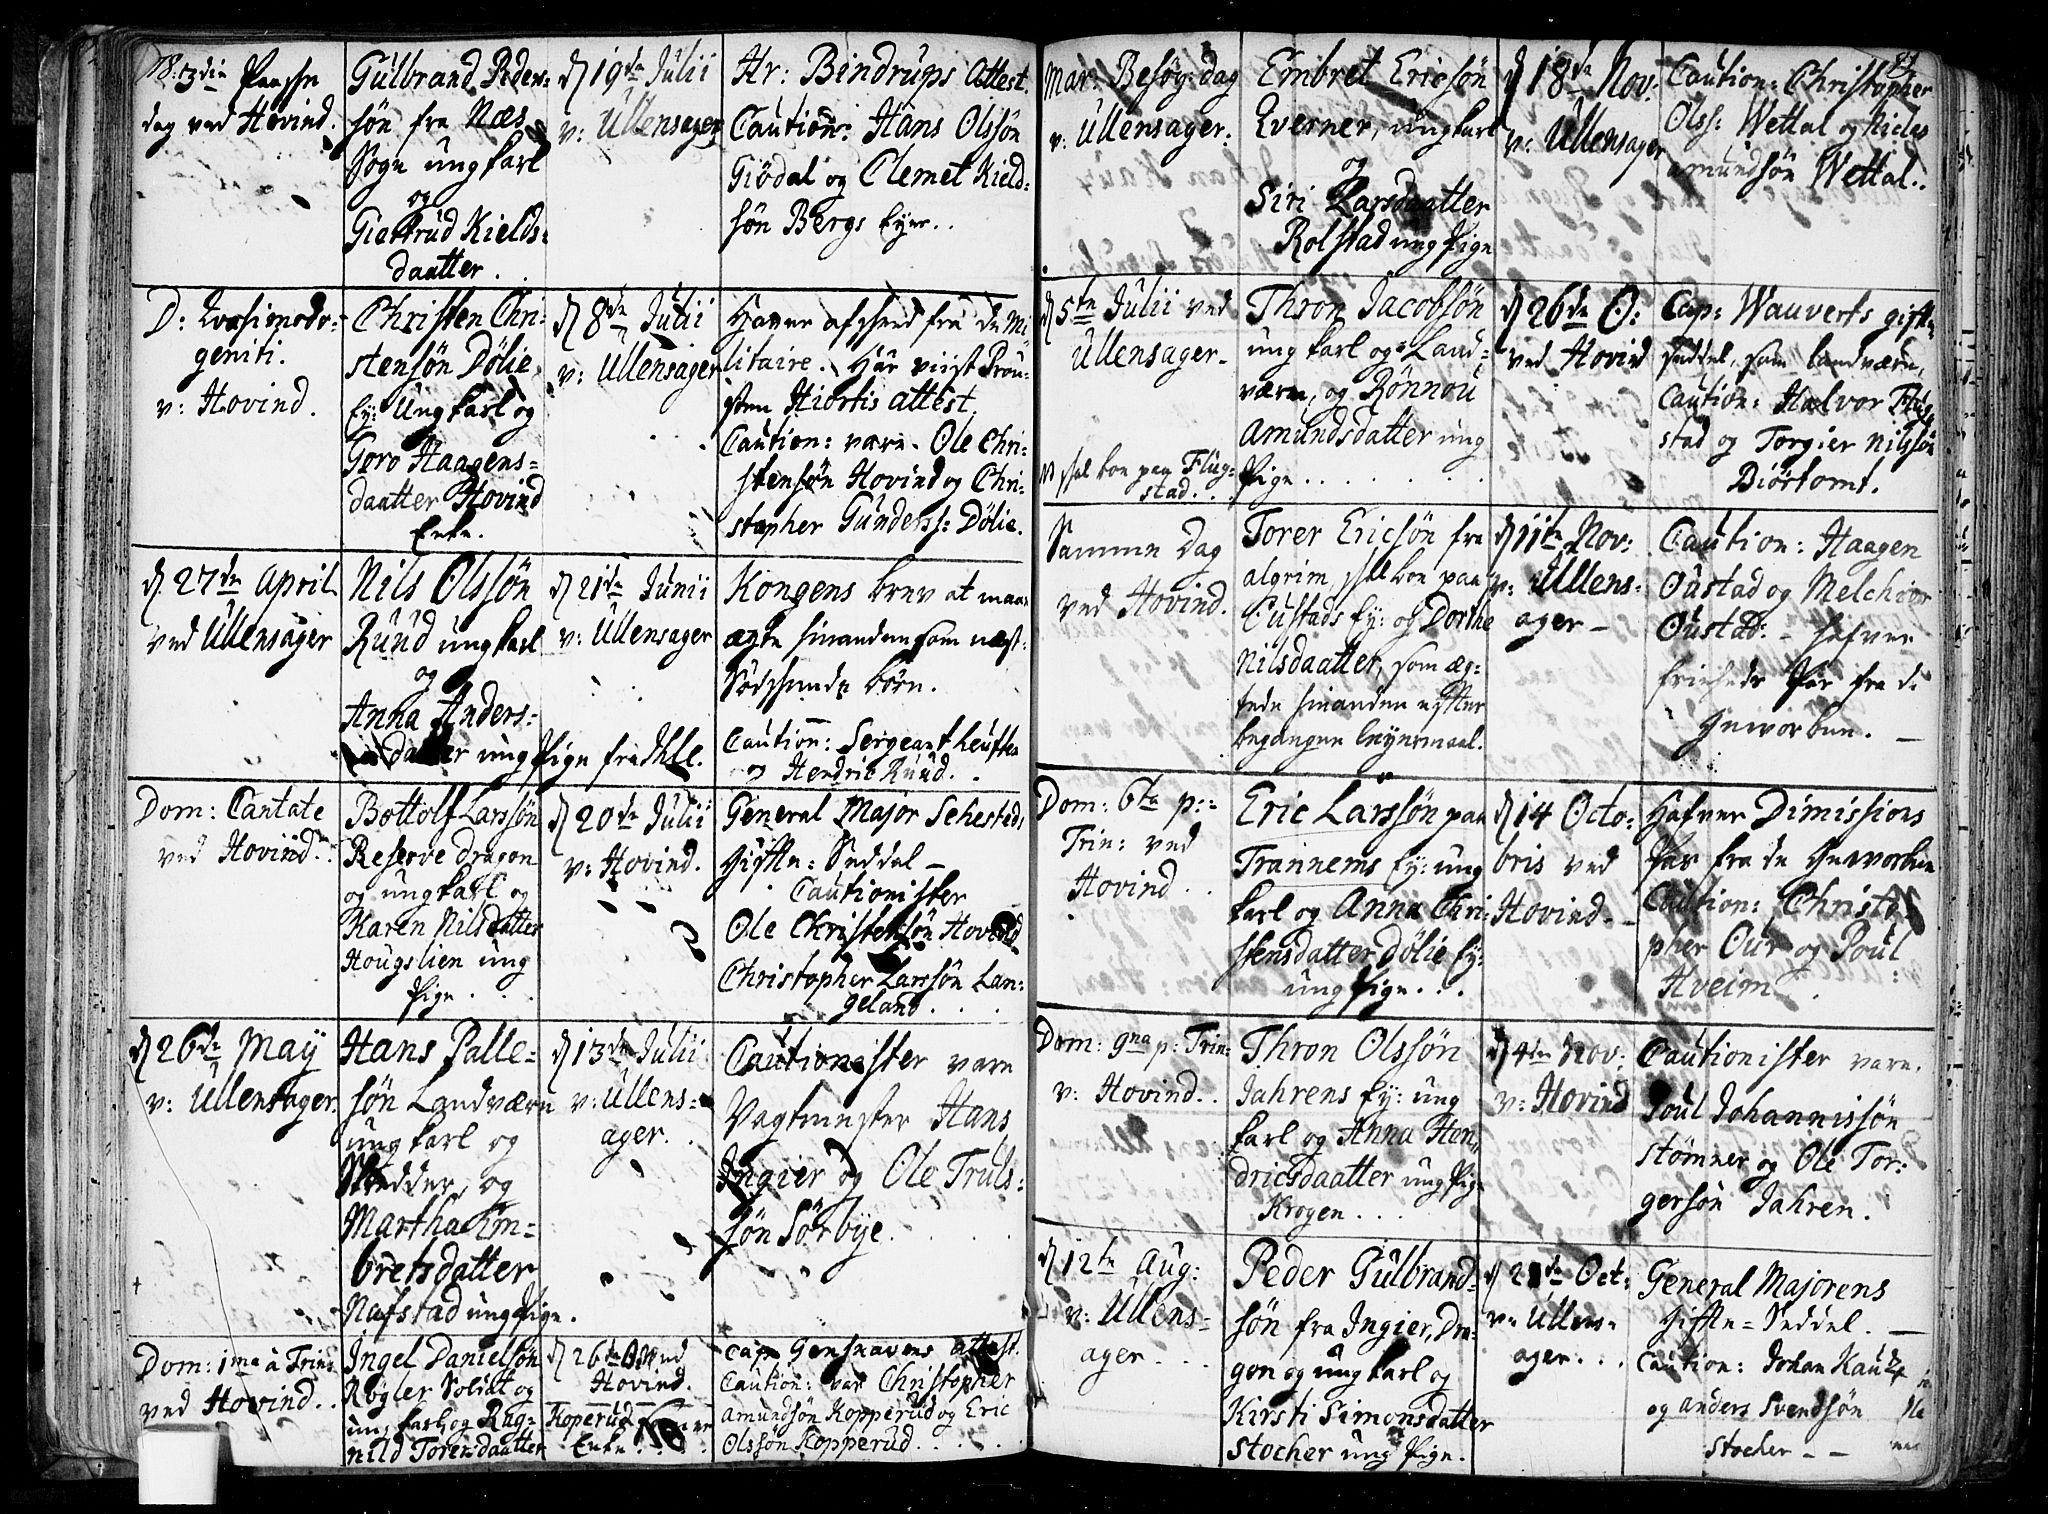 D. 3die Paasche
dag ved Hovind.
Gulbrand Peder-
søn fra Næs
Sogn ungkarl
og
Giertrud Kields-
daatter.
D 19de Julii
v: Ullensager
Hr: Bindrups Attest.
Caution: Hans Olssøn
Giødal og Clemet Kield-
søn Bergs Eyer..
D: Qvasimodo-
geniti.
v: Hovind.
Christen Chri-
stensøn Dölie
Ey: Ungkarl og
Goro Haagens-
daatter Hovind
Enke.
D 8de Julii
v: Ullensager
Haver afsheed fra de Mi-
litaire. Har viist Prou-
sten Hiortis attest.
Caution: vare. Ole Chri-
stensøn Hovind og Chri-
stopher Gunderss: Dölie.
D. 27de April
ved Ullensager
Nils Olssøn
Ruud ungkarl
og
Anna Anders-
datter ung Pige fra Ihle.
D 21de Junii
v: Ullensager
Kongens brev at maae
ægte hinanden som næst-
Södschende börn.
Caution: Sergeant
og Hendric Ruud..
Dom: Cantate
ved Hovind..
Bottolf Larssøn
Reserve dragon
og ungkarl og
Karen Nilsdatter
Hougslien ung
Pige...
D 20de Julii
v: Hovind.
General Major Sehesteds
Gifte-Seddel —
Cautionister
Ole Christensøn Hovind
Christopher Larssøn Lan-
geland....
D 26de May
v: Ullensager.
Hans Palle-
søn Landværn
ungkarl og
og
Martha Em-
bretsdatter
Nafstad ung Pige.
D 13de Julii
v: Ullens-
ager..
Cautionister vare
Vagtmester Hans
Ingier og Ole Truls-
søn Sörbye.
Dom: 1ma a Trin:
ved Hovind..
Ingel Danielsøn
Røgler Soldat og
ungkarl og Rag-
nild Torersdaatter
D 26de ved
Hovind.
Koperud
Enke...
Cap: attest.
Caution: var Christopher
Amundsøn Kopperud og Eric
Olssøn Kopperud....
Mar: Besøg: dag
v: Ullensager.
Embret Ericsøn
Everner, ungkarl
og
Siri Larsdaatter
Rolstad ung Pige
D 18de Nov:
v: Ullensager
Caution: Christopher
Olss: Wettal og Niclas
Amundsøn Wettal..
D 5te Julii ved
Ullensager-
skal boe paa Flug-
stad...
Thron Jacobsøn
ung karl og Land-
værn, og Rönnou
Amundsdatter ung
Pige........
D 26de O:
ved Hovind
Cap: Wauverts gifte
seddel, som landværn,
Caution: Halvor Flug-
stad og Torgier Nilssøn
Biörtomt.
Samme Dag
ved Hovind.
Torer Ericsøn fra
algrim, skal boe paa
Custads Ey: og Dorthe
Nilsdaatter, som æg-
tede hinanden efter
begangen leyermaal.
D 11te Nov:
v: Ullens-
ager —
Caution: Haagen
Oustad og Melchior
Oustad. - hafver
friheds Pas fra de
Gevorbne. —
Dom: 6te p:
Trin: ved
Hovind..
Eric Larssøn paa
Trannems Ey: ung
karl og Anna Chri-
stensdatter Dölie Ey:
ung Pige...
D 14 Octo-
bris ved
Hovind.-
Hafver Dimissions
Pas fra de Gevorbne
Caution: Christo-
pher Our og Poul
Hveim.
Dom: 9na p: Trin:
v: Hovind..
Thron Olssøn
Jahrens Ey: ung
karl og Anna Hen-
dricsdaatter ung Pige
Krogen...
D 4de Nov:
v: Hovind
Cautionister vare.
Poul Johannissøn
Stömner og Ole Tor-
gersøn Jahren.
D 12te Aug:
v: Ullens-
ager...
Peder Gulbrand-
søn fra Ingier, Dra-
gon og ungkarl og
Kirsti Simonsdatter
Stocher ung Pige.
D 21de Oct:
v: Ullens-
ager...
General Majorens
Gifte-Seddel. —
Caution: Johan Kautz
og Anders Svendsøn
Stocher - -